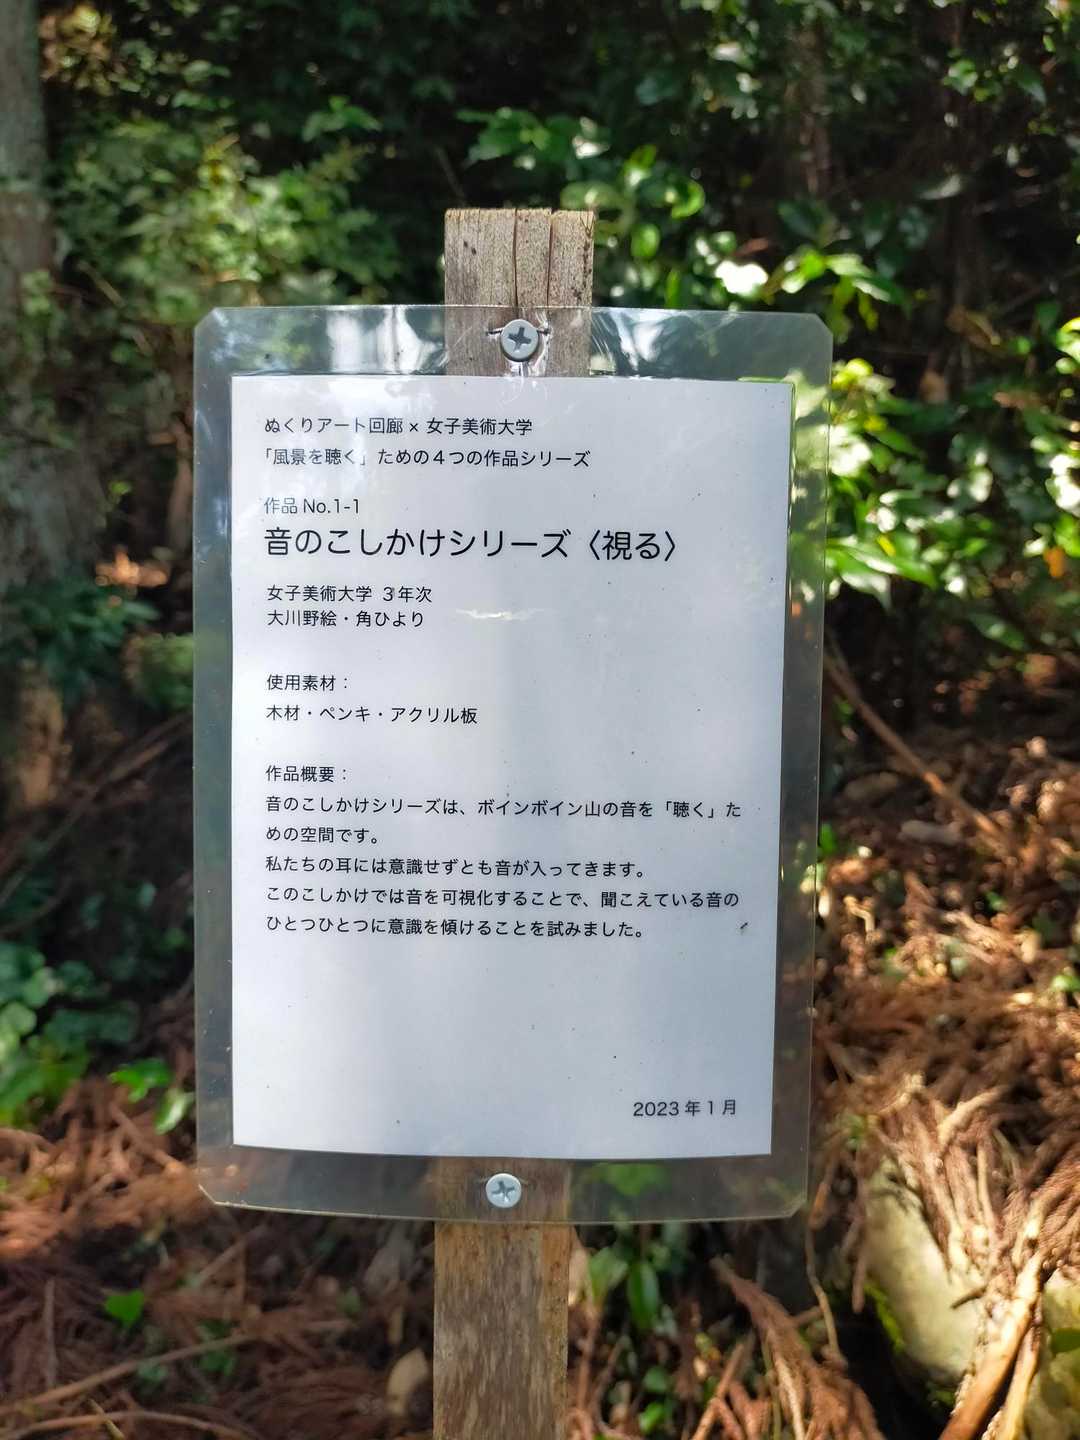 ぬくりアート回廊 × 女子美術大学
「風景を聴く」ための4つの作品シリーズ
作品 No.1-1
音のこしかけシリーズ〈視る〉
女子美術大学 3年次
大川野絵・角ひより
使用素材：
木材・ペンキ・アクリル板
作品概要：
音のこしかけシリーズは、ボインボイン山の音を「聴く」た
めの空間です。
私たちの耳には意識せずとも音が入ってきます。
このこしかけでは音を可視化することで、聞こえている音の
ひとつひとつに意識を傾けることを試みました。
2023 年 1 月